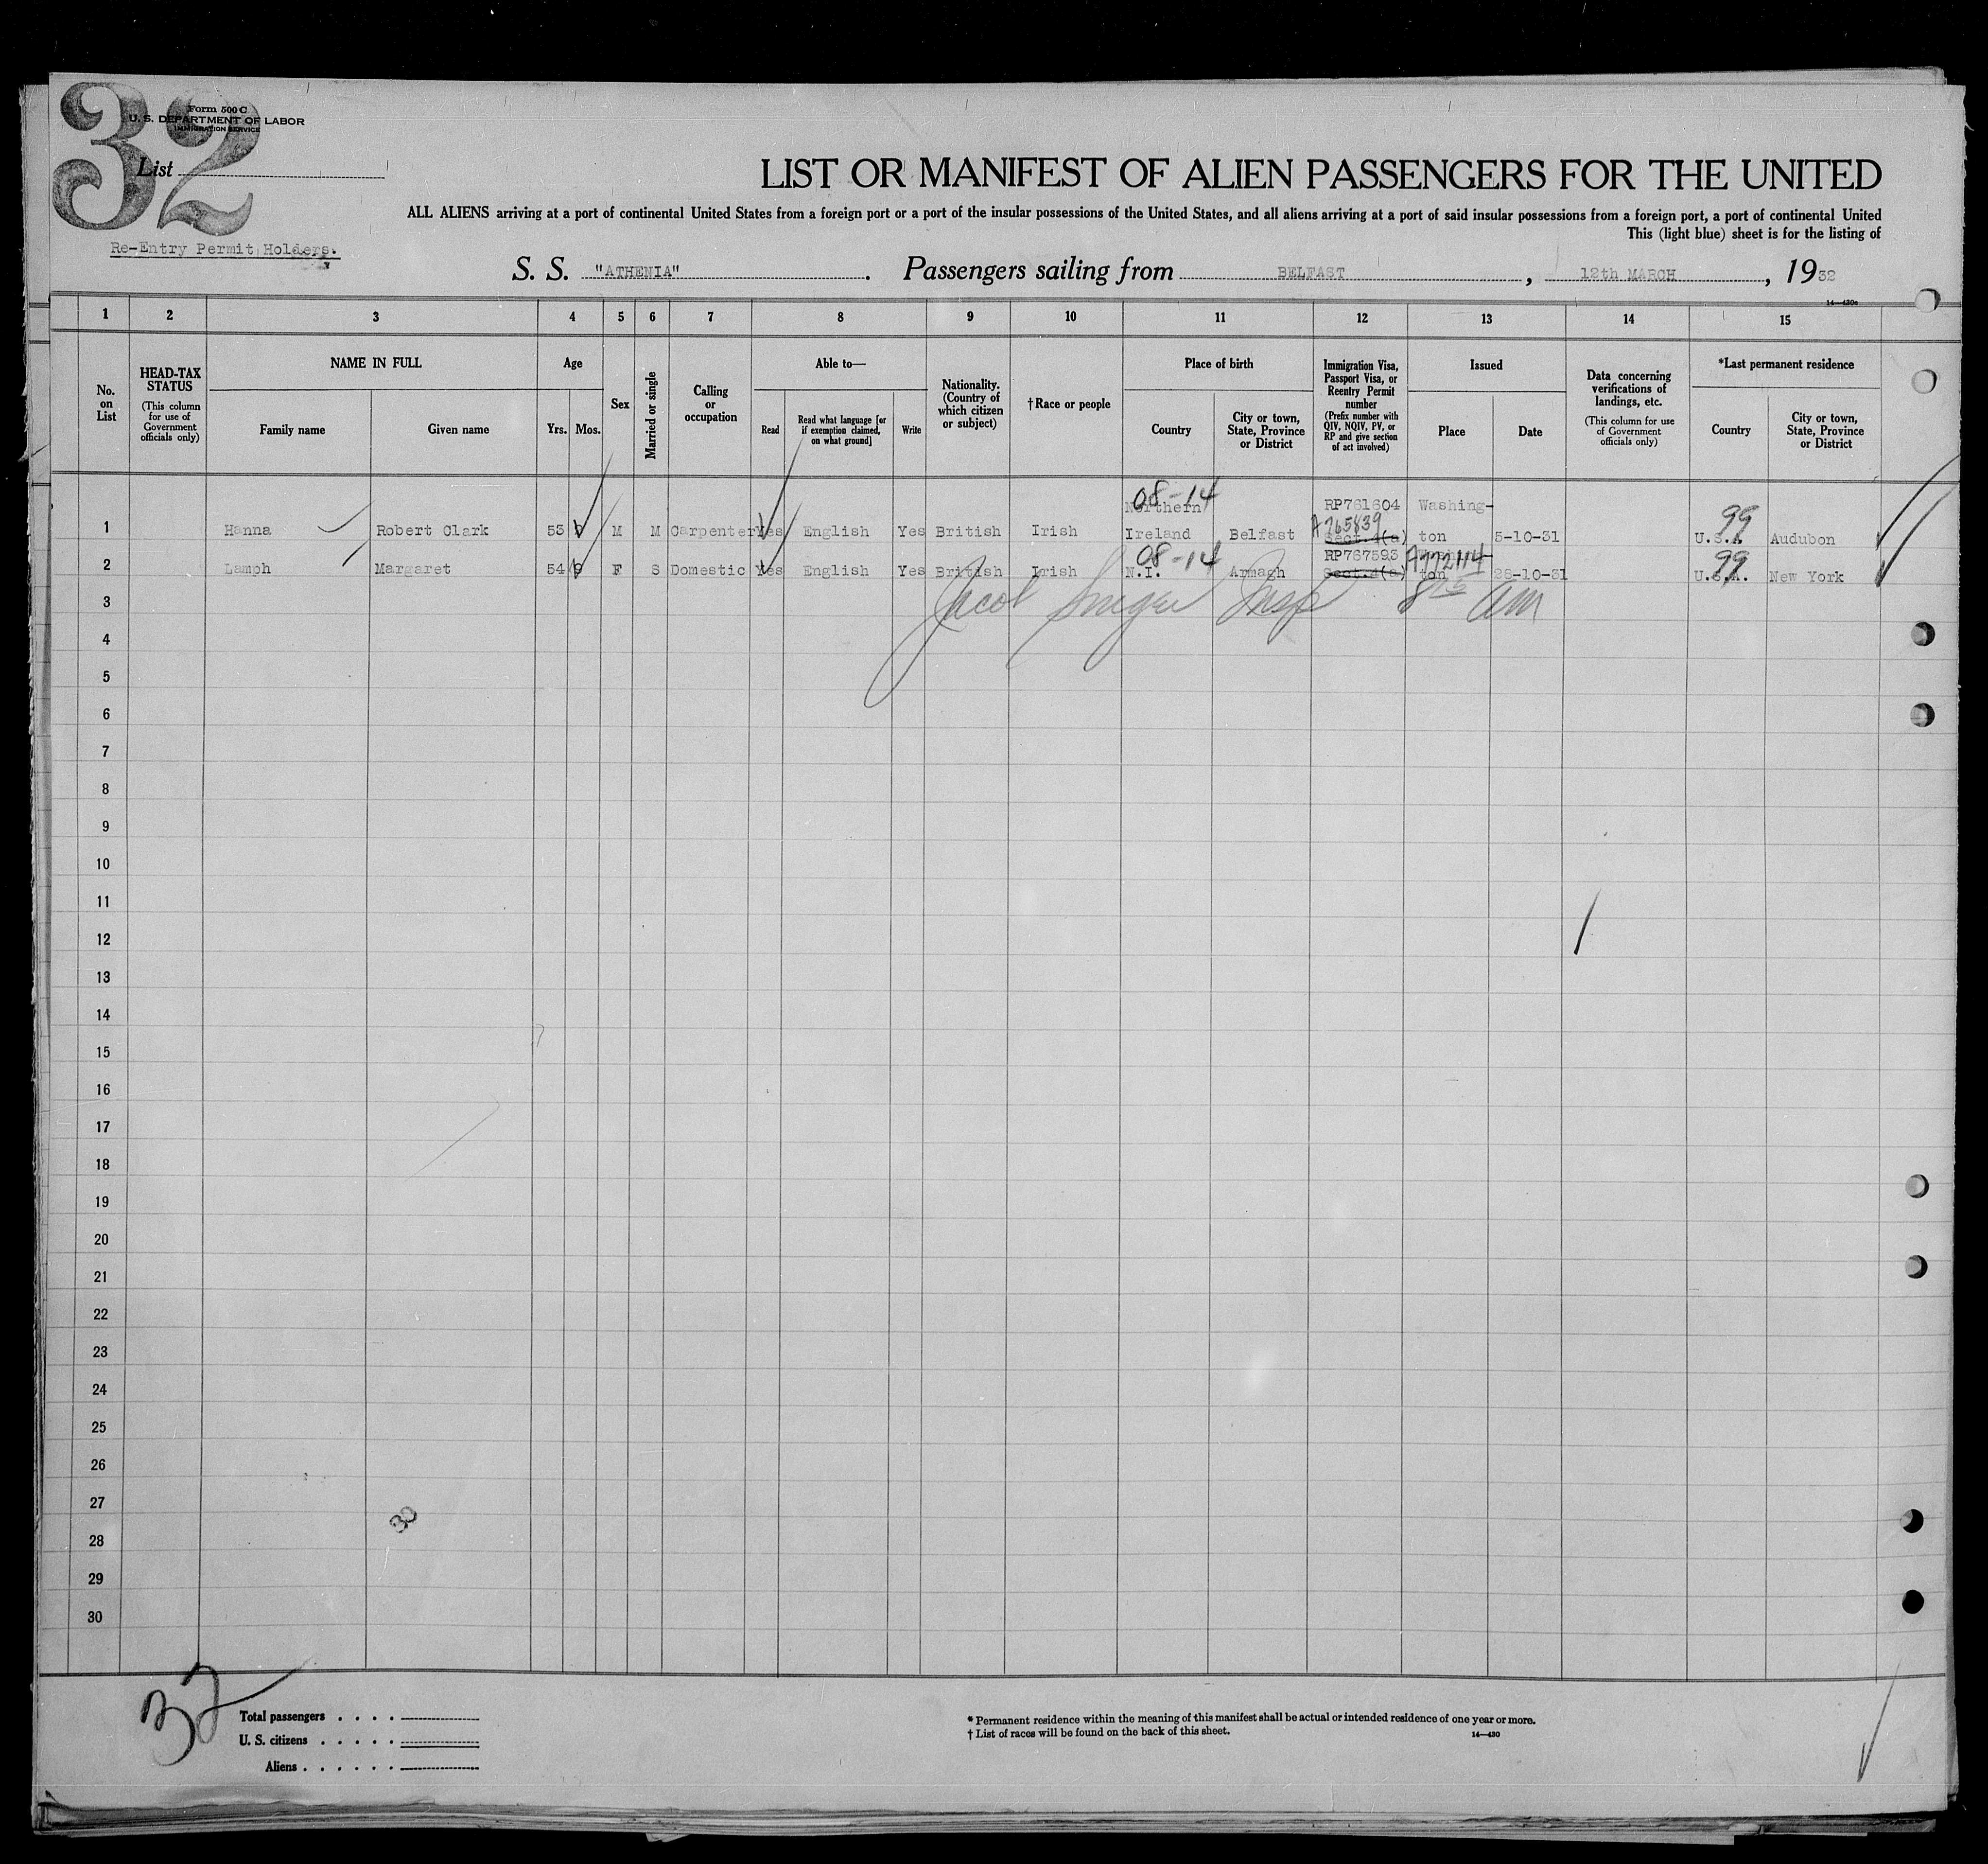 32
Form 500 C
U. S. DEPARTMENT OF LABOR
IMMIGRATION SERVICE
List
LIST OR MANIFEST OF ALIEN PASSENGERS FOR THE UNITED
ALL ALIENS arriving at a port of continental United States from a foreign port or a port of the insular possessions of the United States, and all aliens arriving at a port of said insular possessions from a foreign port, a port of continental United
This (light blue) sheet is for the listing of
Re-Entry Permit Holders.
S. S. "ATHENIA". Passengers sailing from BELFAST, 12th MARCH, 1932
14—430c
1 2 3 4 5 6 7 8 9 10 11 12 13 14 15
No. on List
HEAD-TAX STATUS (This column for use of Government officials only)
NAME IN FULL
Family name
Given name
Age
Yrs. Mos.
Sex
Married or single
Calling or occupation
Able to—
Read
Read what language [or if exemption claimed, on what ground]
Write
Nationality. (Country of which citizen or subject)
†Race or people
Place of birth
Country
City or town, State, Province or District
Immigration Visa, Passport Visa, or Reentry Permit number (Prefix number with QIV, NQIV, PV, or RP and give section of act involved)
Issued
Place
Date
Data concerning verifications of landings, etc. (This column for use of Government officials only)
*Last permanent residence
Country
City or town, State, Province or District
08-14
Northern RP761604 Washing-
A765839 99
1 Hanna Robert Clark 53 M M Carpenter Yes English Yes British Irish Ireland Belfast Sect.4(a) ton 5-10-31 U.S.A Audubon
08-14 RP767593 A772114 99
2 Lamph Margaret 54 9 F S Domestic Yes English Yes British Irish N.I. Armagh Sect.4(a) ton 28-10-31 U.S.A. New York
3 Jacob Insp am
4
5
6
7
8
9
10
11
12
13
14
15
16
17
18
19
20
21
22
23
24
25
26
27
30
28
29
30
32
Total passengers . . . .
U. S. citizens . . . . .
Aliens . . . . . .
* Permanent residence within the meaning of this manifest shall be actual or intended residence of one year or more.
† List of races will be found on the back of this sheet.
14—430